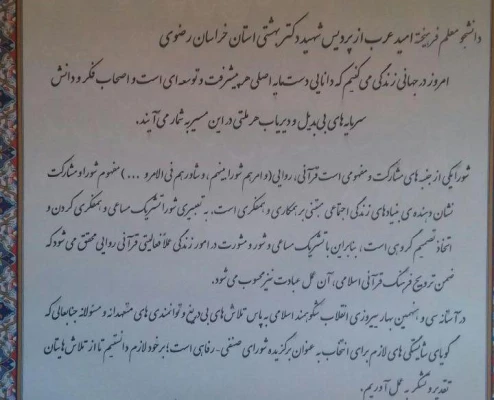 دانشجو معلم فرهیخته امید عرب از پردیس شهید دکتر بهشتی استان خراسان رضوی
امروز در جهانی زندگی می کنیم که دانایی دست مایه اصلی هر پیشرفت و توسعه ای است و اصحاب فکر و دانش
سرمایه های بی بدیل و دیریاب هر ملتی در این مسیر به شمار می آیند.
شورا یکی از جنبه های مشارکت و مفهومی است قرآنی، روایی (و امرهم شورا بینهم، و شاورهم فی الامر و ...) مفهوم شورا و مشارکت
نشان دهنده ی بنیادهای زندگی اجتماعی مبتنی بر همکاری و همفکری است. به تعبیری شورا تشریک مساعی و همفکری کردن و
اتخاذ تصمیم گروهی است، بنابراین با تشریک مساعی و شور و مشورت در امور زندگی عملاً فعالیتی قرآنی روایی محقق می شود که
ضمن ترویج فرهنگ قرآنی اسلامی، آن عمل عبادت نیز محسوب می شود.
در آستانه سی و هفتمین بهار پیروزی انقلاب شکوهمند اسلامی به پاس تلاش های بی دریغ و توانمندی های متعهدانه و مسئولانه جنابعالی که
گویای شایستگی های لازم برای انتخاب به عنوان برگزیده شورای صنفی - رفاهی است؛ بر خود لازم دانستیم تا از تلاش هایتان
تقدیر و تشکر به عمل آوریم.